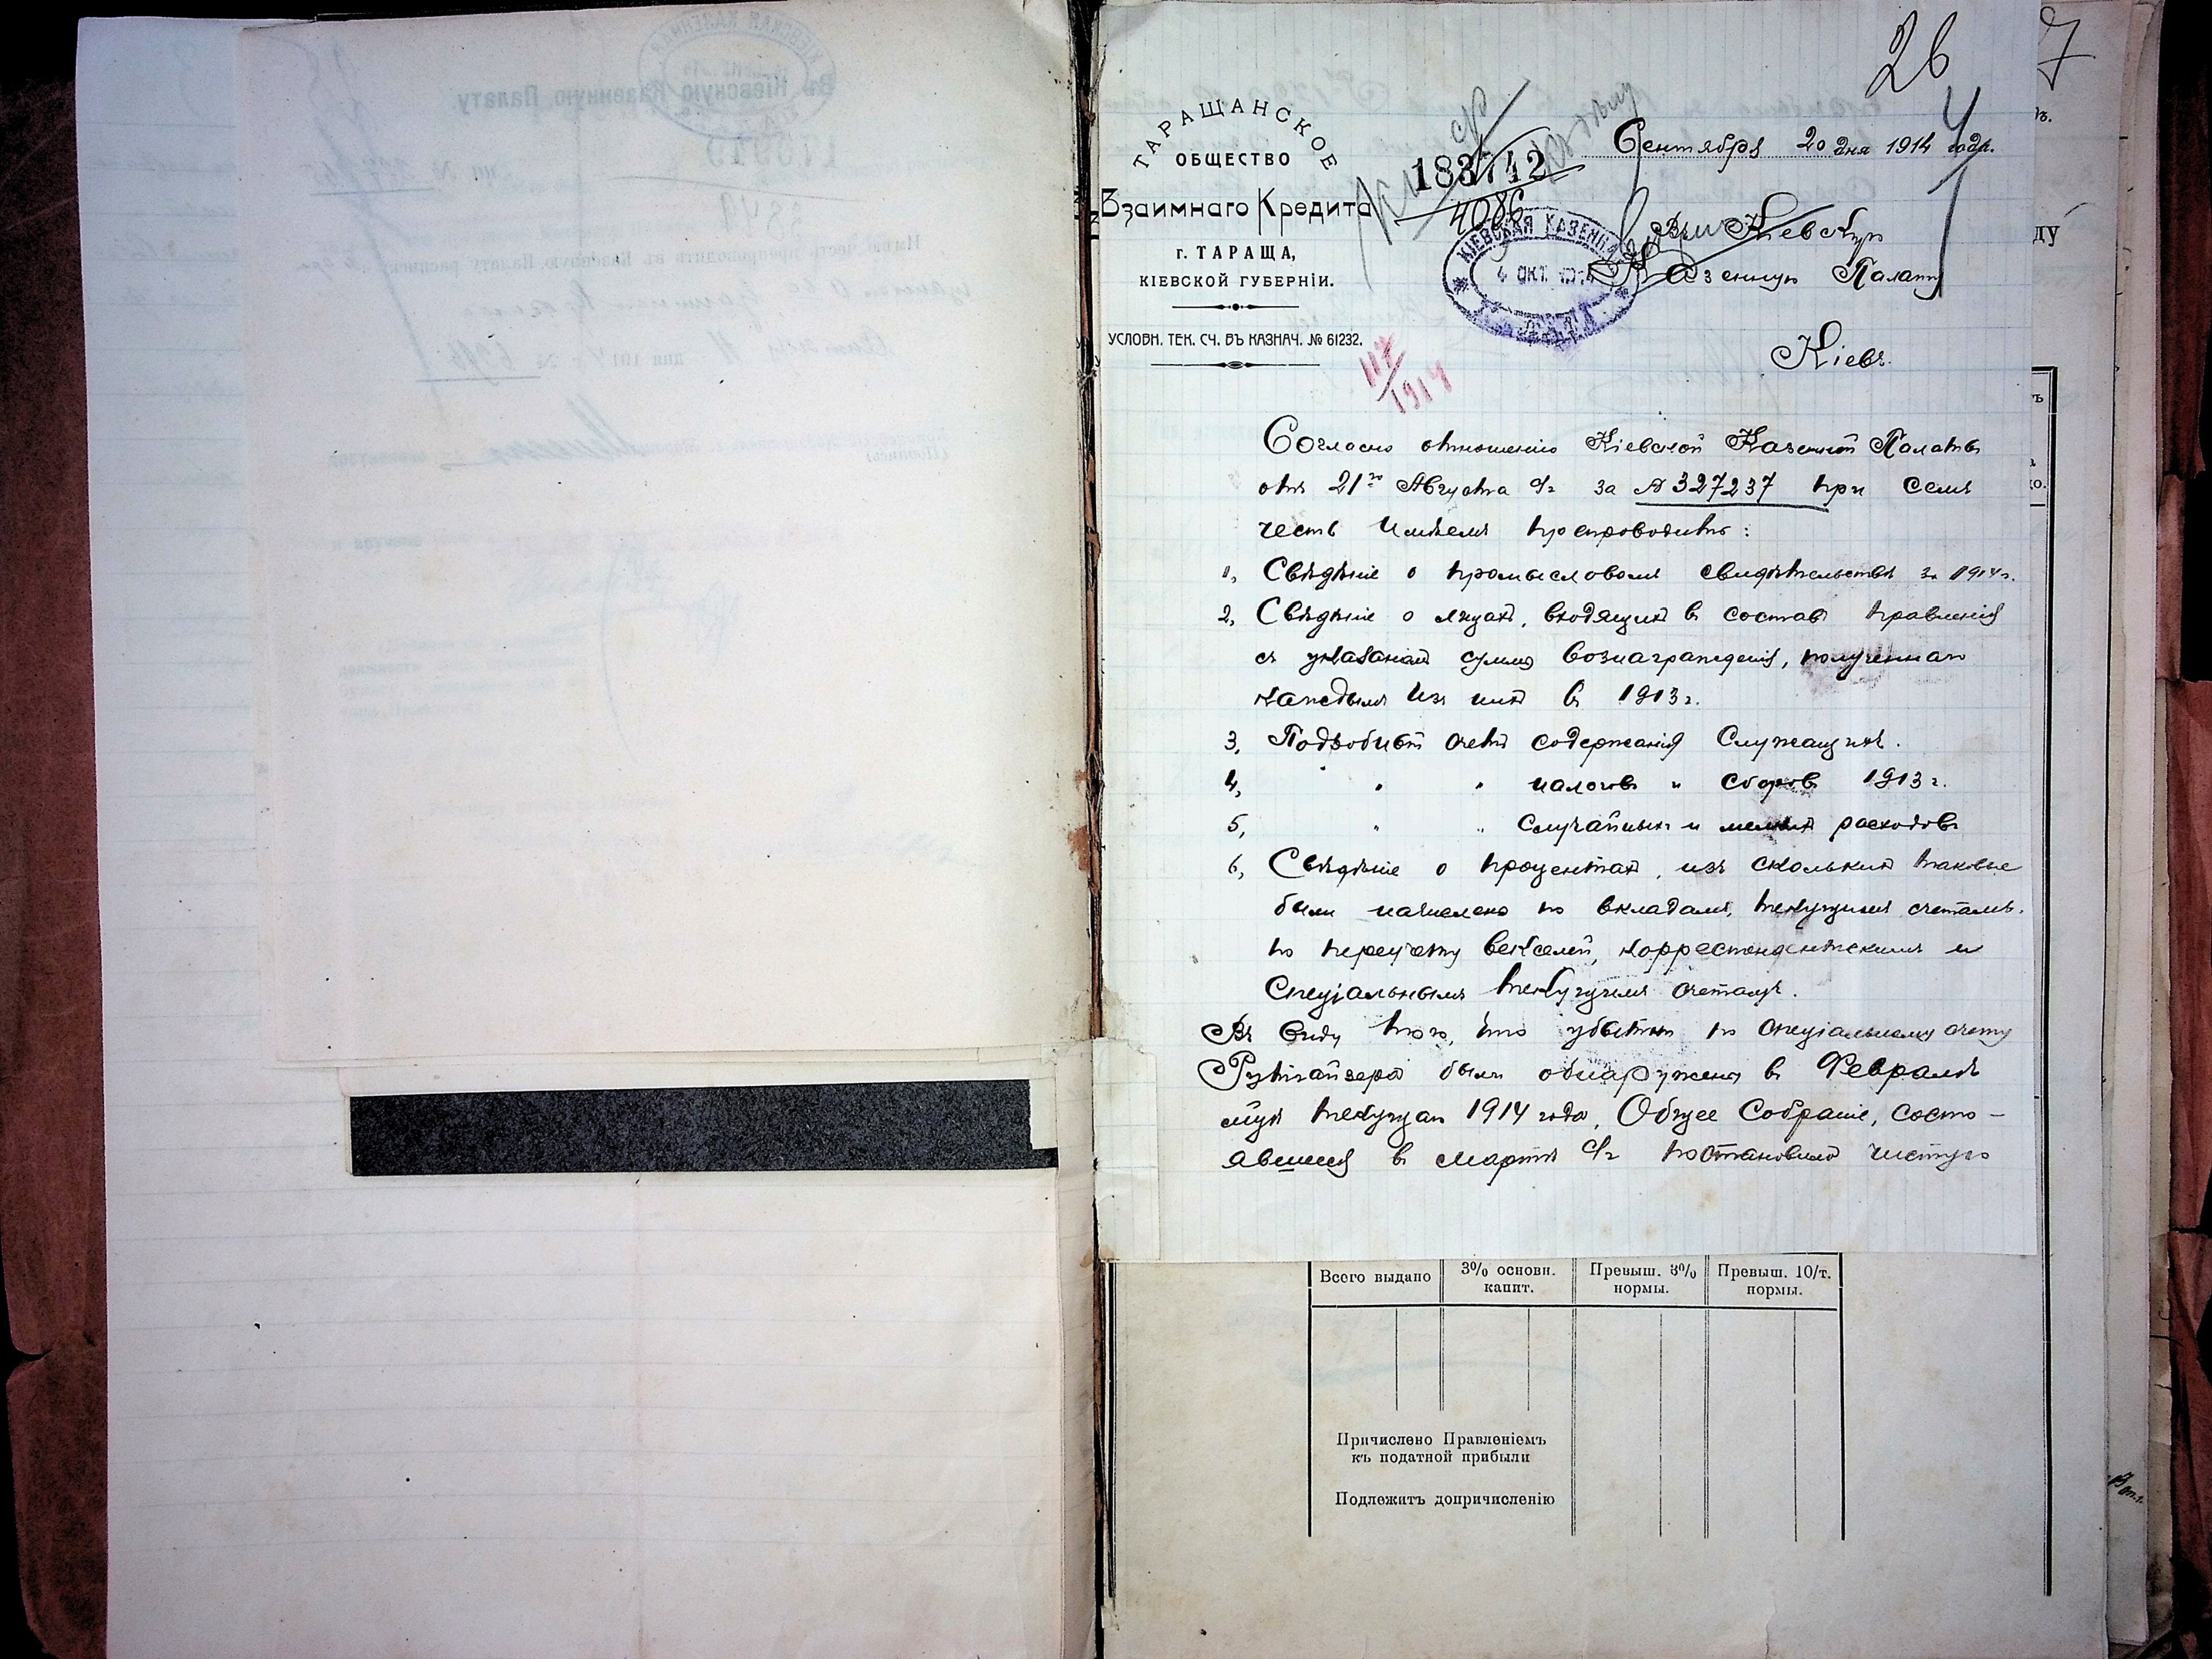 26
7
ТАРАЩАНСКОЕ
ОБЩЕСТВО
Взаимнаго Кредита
г. ТАРАЩА,
КІЕВСКОЙ ГУБЕРНІИ.
УСЛОВН. ТЕК. СЧ. ВЪ КАЗНАЧ. № 61232.
183742
4086
Сентября 20 дня 1914 года.
КІЕВСКАЯ КАЗЕННАЯ
4 ОКТ. 1914
Въ Кіевскую
Казенную Палату
Кіевъ.
117/1914
Согласно отношенію Кіевской Казенной Палаты
отъ 21го Августа с/г за № 327237 при семъ
честь имѣемъ препроводить:
1, Свѣдѣніе о промысловомъ свидѣтельствѣ за 1914 г.
2, Свѣдѣніе о лицахъ, входящихъ в состав правленія
съ указаніем суммъ вознагражденія, полученнаго
каждымъ изъ них в 1913 г.
3, Подробный счетъ содержанія служащихъ.
4, " " налоговъ и сборовъ 1913 г.
5, " " случайныхъ и мелкихъ расходовъ
6, Свѣдѣніе о процентахъ, изъ сколькихъ таковые
были начислено по вкладамъ, текущимъ счетамъ,
по переучету векселей, корреспондентскимъ и
спеціальнымъ текущимъ счетамъ.
Въ виду того, что убытки по спеціальному счету
были обнаружены в Февралѣ
мцѣ текущаго 1914 года, Общее Собраніе, состо-
явшееся в Мартѣ с/г постановило чистую
Всего выдано
3% основн. капит.
Превыш. 3% нормы.
Превыш. 10/т. нормы.
Причислено Правленіемъ
къ податной прибыли
Подлежитъ допричисленію